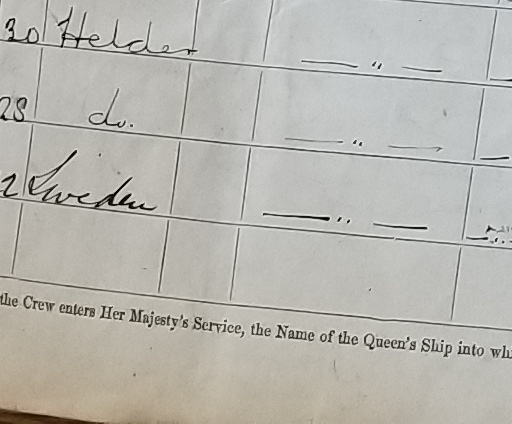 30 Helder — " —
28 do. — " —
2 Sweden — " —
the Crew enters Her Majesty's Service, the Name of the Queen's Ship into whi